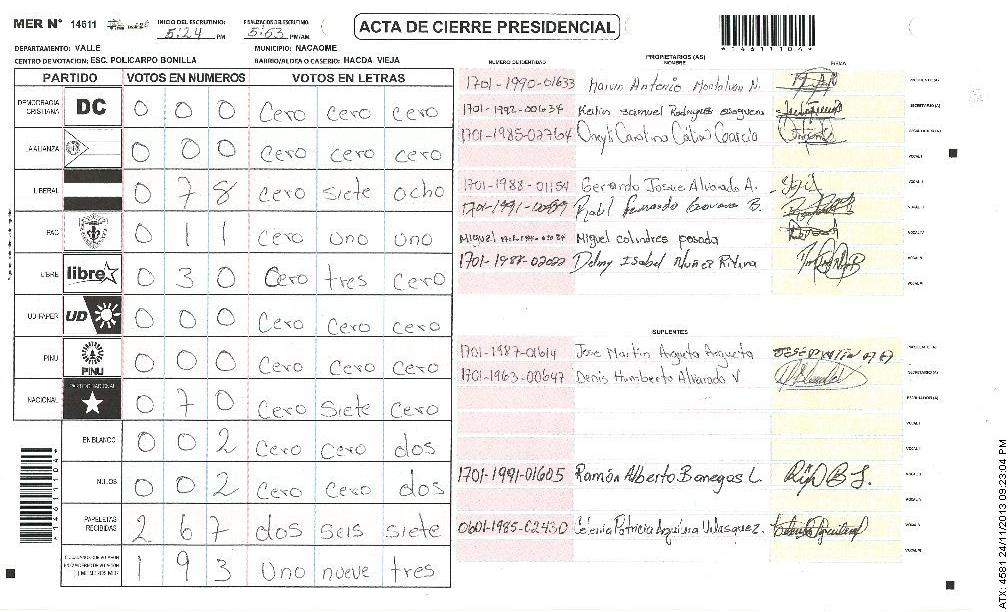 MER N° 14611
INICIO DEL ESCRUTINIO: 5:24 PM
FINALIZACIÓN DEL ESCRUTINIO: 5:53 PM/AM
ACTA DE CIERRE PRESIDENCIAL
*1461104*
DEPARTAMENTO: VALLE
MUNICIPIO: NACAOME
CENTRO DE VOTACION: ESC. POLICARPO BONILLA
BARRIO/ALDEA O CASERIO: HACDA. VIEJA
PARTIDO VOTOS EN NUMEROS VOTOS EN LETRAS
DEMOCRACIA CRISTIANA DC 0 0 0 Cero Cero Cero
ALIANZA 0 0 0 Cero cero cero
LIBERAL 0 7 8 Cero siete ocho
PAC 0 1 1 Cero uno uno
LIBRE libre 0 3 0 Cero tres Cero
UD-FAPER UD 0 0 0 Cero Cero cero
PINU PINU 0 0 0 Cero Cero Cero
NACIONAL PARTIDO NACIONAL 0 7 0 Cero Siete Cero
EN BLANCO 0 0 2 Cero Cero dos
NULOS 0 0 2 Cero Cero dos
PAPELETAS RECIBIDAS 2 6 7 dos seis siete
1 9 3 Uno nueve tres
NUMERO DE IDENTIDAD
PROPIETARIOS (AS)
NOMBRE
FIRMA
1701-1990-01633 Marvin Antonio
1701-1992-00634 Samuel Rodriguez
1701-1985-02764 Carolina García
1701-1988-01154 Gerardo Josue Alvarado A.
1701-1991- B.
Miguel Miguel colindres posada
1701-1988-02022 Delmy Isabel Nuñez Rivera
SUPLENTES
1701-1987-01614 Jose Martin Argueta Argueta
1701-1963-00647 Denis Humberto Alvarado V
1701-1991-01605 Ramón Alberto Banegas L.
0601-1985-02430 Patricia Aguilera Velasquez.
ATX: 4581 24/11/2013 09:23:04 PM